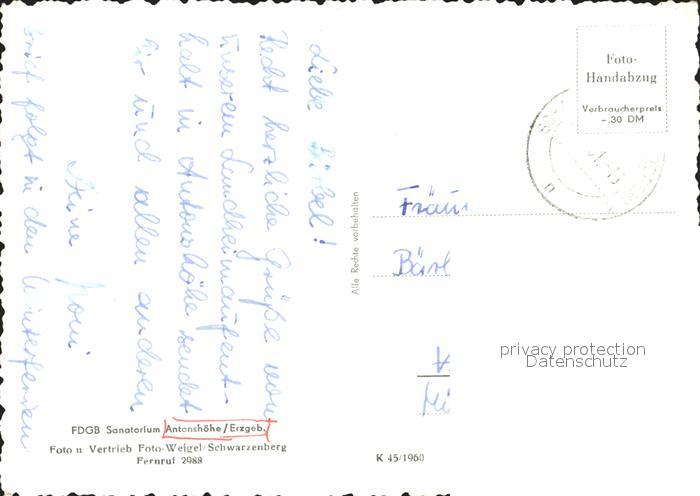 Liebe Bärbel!
Recht herzliche Grüße von
unserem Landheimaufent-
halt in Antonshöhe sendet
Dir und allen anderen
Deine Moni
Brief folgt in den Winterferien
FDGB Sanatorium Antonshöhe/Erzgeb.
Foto u. Vertrieb Foto-Weigel/Schwarzenberg
Fernruf 2988
Alle Rechte vorbehalten
K 45/1960
Foto-
Handabzug
Verbraucherpreis
-.30 DM
Fräu
Bärb
privacy protection
Datenschutz